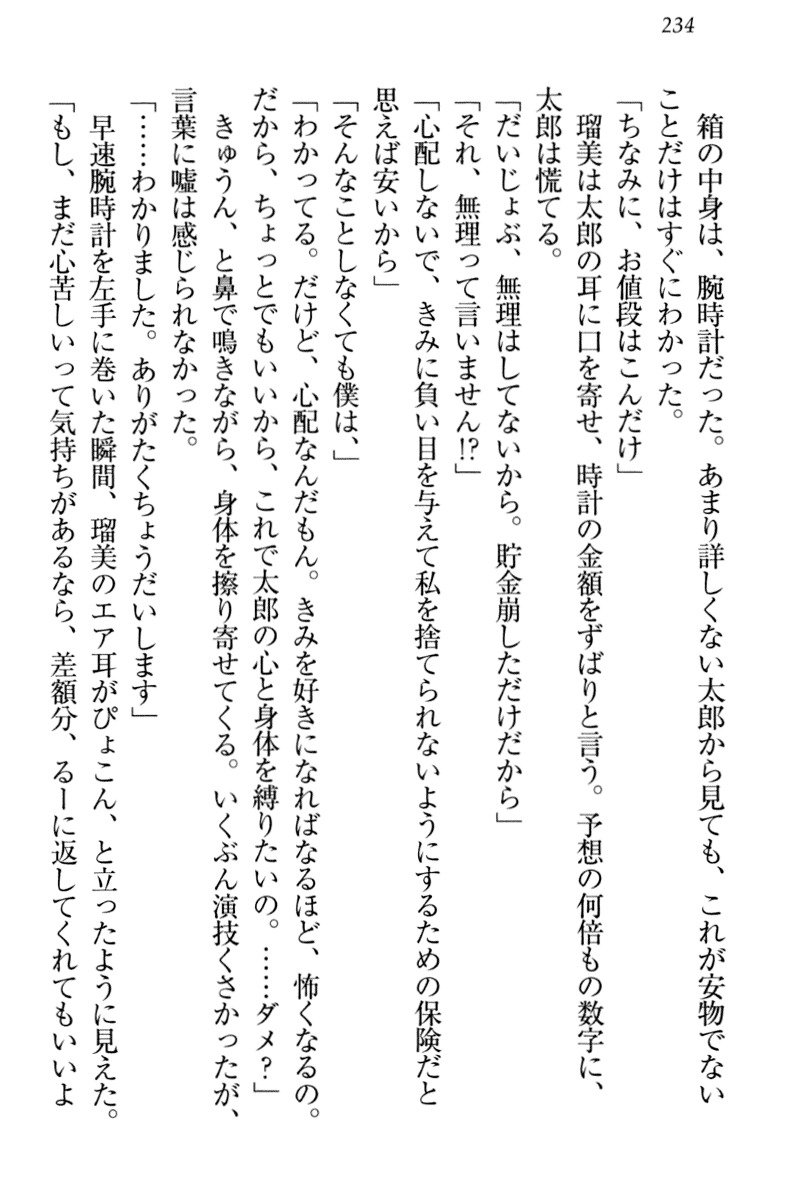 234
　箱の中身は、腕時計だった。あまり詳しくない太郎から見ても、これが安物でない
ことだけはすぐにわかった。
「ちなみに、お値段はこんだけ」
　瑠美は太郎の耳に口を寄せ、時計の金額をずばりと言う。予想の何倍もの数字に、
太郎は慌てる。
「だいじょぶ、無理はしてないから。貯金崩しただけだから」
「それ、無理って言いません!?」
「心配しないで、きみに負い目を与えて私を捨てられないようにするための保険だと
思えば安いから」
「そんなことしなくても僕は、」
「わかってる。だけど、心配なんだもん。きみを好きになればなるほど、怖くなるの。
だから、ちょっとでもいいから、これで太郎の心と身体を縛りたいの。……ダメ？」
　きゅうん、と鼻で鳴きながら、身体を擦り寄せてくる。いくぶん演技くさかったが、
言葉に嘘は感じられなかった。
「……わかりました。ありがたくちょうだいします」
　早速腕時計を左手に巻いた瞬間、瑠美のエア耳がぴょこん、と立ったように見えた。
「もし、まだ心苦しいって気持ちがあるなら、差額分、るーに返してくれてもいいよ